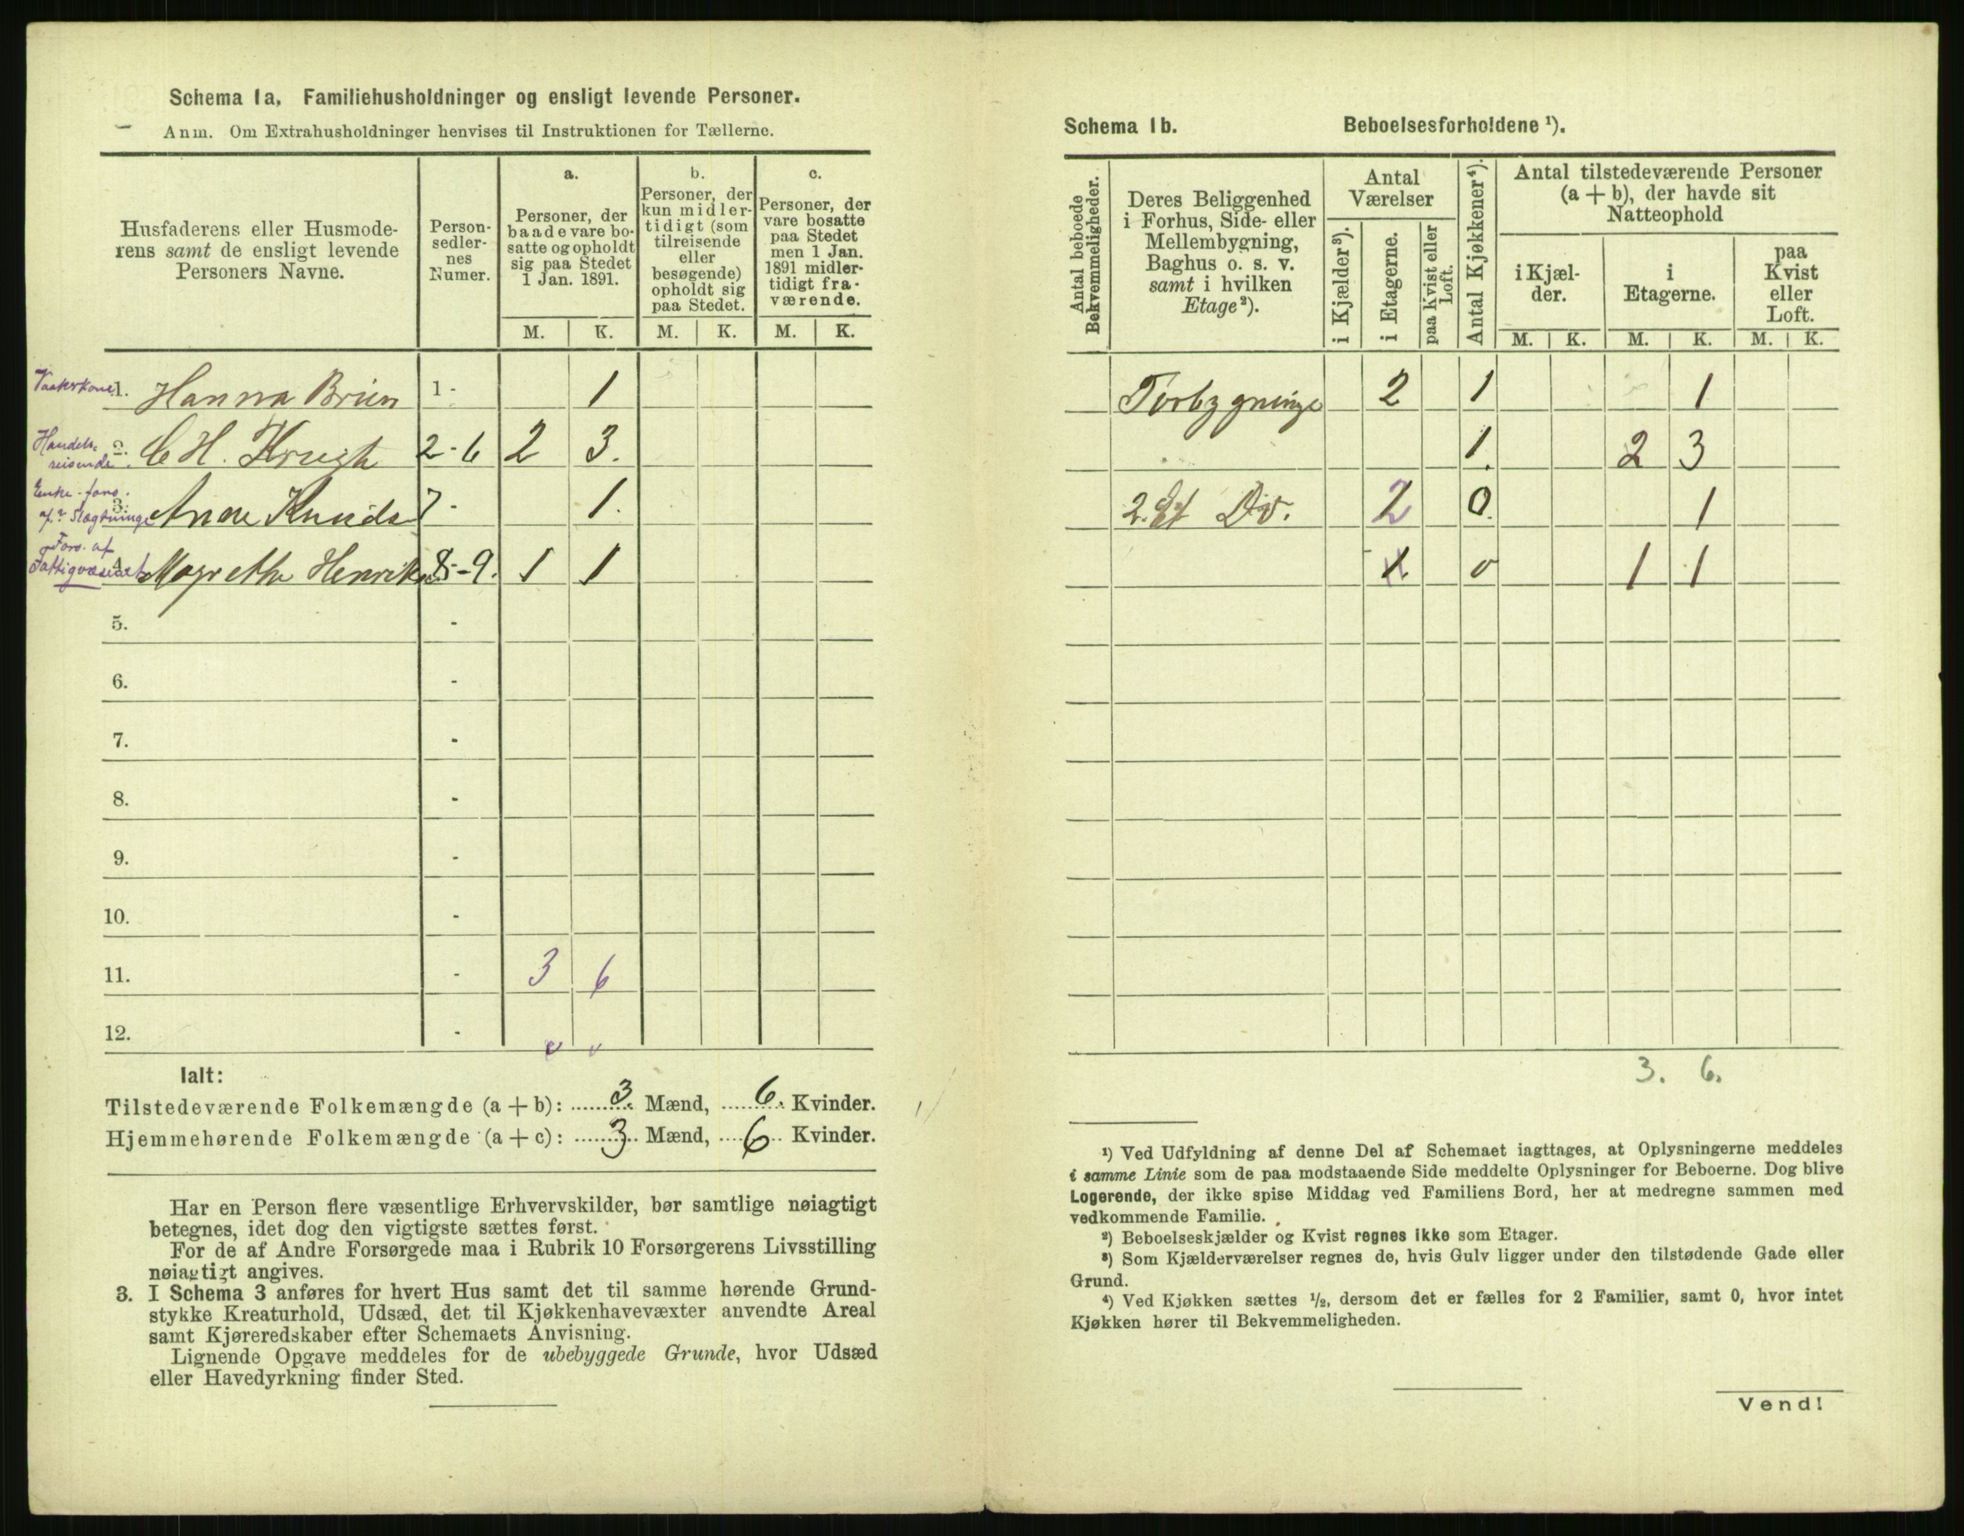 Schema 1a. Familiehusholdninger og ensligt levende Personer.
Anm. Om Extrahusholdninger henvises til Instruktionen for Tællerne.
Husfaderens eller Husmoderens samt de ensligt levende Personers Navne.
Person-sedlernes Numer.
a.
Personer, der baade vare bosatte og opholdt sig paa Stedet 1 Jan. 1891.
b.
Personer, der kun midlertidigt (som tilreisende eller besøgende) opholdt sig paa Stedet.
c.
Personer, der vare bosatte paa Stedet men 1 Jan. 1891 midlertidigt fraværende.
M. K. M. K. M. K.
Vaskerkone 1. Hanna Brun 1 - 1
Handelsreisende 2. C H. Krogh 2 - 6 2 3.
Enke. fors. af Slægtninge 3. Anne Knuds 7 - 1.
Fors. af Fattigvæsenet 4. Magrethe Henriks 8 - 9. 1 1
5. -
6. -
7. -
8. -
9. -
10. -
11. - 3 6
12. -
Ialt:
Tilstedeværende Folkemængde (a + b): 3. Mænd, 6. Kvinder.
Hjemmehørende Folkemængde (a + c): 3 Mænd, 6 Kvinder.
Har en Person flere væsentlige Erhvervskilder, bør samtlige nøiagtigt
betegnes, idet dog den vigtigste sættes først.
For de af Andre Forsørgede maa i Rubrik 10 Forsørgerens Livsstilling
nøiagtigt angives.
3. I Schema 3 anføres for hvert Hus samt det til samme hørende Grund-
stykke Kreaturhold, Udsæd, det til Kjøkkenhavevæxter anvendte Areal
samt Kjøreredskaber efter Schemaets Anvisning.
Lignende Opgave meddeles for de ubebyggede Grunde, hvor Udsæd
eller Havedyrkning finder Sted.
Schema 1b. Beboelsesforholdene ¹).
Antal beboede Bekvemmeligheder.
Deres Beliggenhed i Forhus, Side- eller Mellembygning, Baghus o. s. v. samt i hvilken Etage²).
Antal Værelser
i Kjælder³).
i Etagerne.
paa Kvist eller Loft.
Antal Kjøkkener⁴).
Antal tilstedeværende Personer (a + b), der havde sit Natteophold
i Kjælder.
i Etagerne.
paa Kvist eller Loft.
M. K. M. K. M. K.
Forbygninge 2 1 1
1. 2 3
2. Et Do. 2 0. 1
1 0 1 1
3. 6.
¹) Ved Udfyldning af denne Del af Schemaet iagttages, at Oplysningerne meddeles
i samme Linie som de paa modstaaende Side meddelte Oplysninger for Beboerne. Dog blive
Logerende, der ikke spise Middag ved Familiens Bord, her at medregne sammen med
vedkommende Familie.
²) Beboelseskjælder og Kvist regnes ikke som Etager.
³) Som Kjælderværelser regnes de, hvis Gulv ligger under den tilstødende Gade eller
Grund.
⁴) Ved Kjøkken sættes ½, dersom det er fælles for 2 Familier, samt 0, hvor intet
Kjøkken hører til Bekvemmeligheden.
Vend!